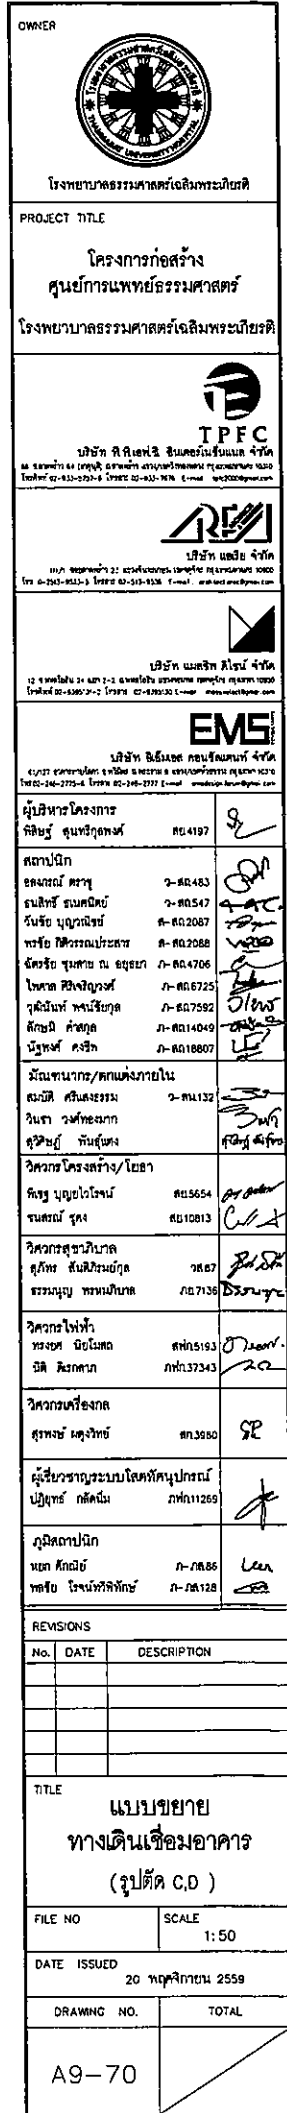 OWNER
โรงพยาบาลธรรมศาสตร์เฉลิมพระเกียรติ
THAMMASAT UNIVERSITY HOSPITAL
โรงพยาบาลธรรมศาสตร์เฉลิมพระเกียรติ
PROJECT TITLE
โครงการก่อสร้าง
ศูนย์การแพทย์ธรรมศาสตร์
โรงพยาบาลธรรมศาสตร์เฉลิมพระเกียรติ
TPFC
บริษัท ที.พี.เอฟ.ซี. อินเตอร์เนชั่นแนล จำกัด
บริษัท แอเรีย จำกัด
บริษัท แมสริท ดีไซน์ จำกัด
EMS
บริษัท อีเอ็มเอส คอนซัลแทนท์ จำกัด
ผู้บริหารโครงการ
พิสิษฐ์ สุนทริกุลพงศ์ สย4197
สถาปนิก
อลงกรณ์ ตราชู ว-สถ483
ธนสิทธิ์ ธเนศนิตย์ ว-สถ547
วันชัย บุญวณิชย์ ส-สถ2087
พรชัย กิติวรรณประสาร ส-สถ2088
ฉัตรชัย ชุมสาย ณ อยุธยา ภ-สถ4706
ไพศาล ศิริเจริญวงศ์ ภ-สถ6725
วุฒินันท์ พจน์ชัยกุล ภ-สถ7592
ลักษมี คำสกุล ภ-สถ14049
นัฐพงศ์ คงชีพ ภ-สถ18807
มัณฑนากร/ตกแต่งภายใน
สมบัติ ศรีแสงธรรม ว-สน132
วินรา วงศ์ทองมาก
สุวิศิษฎ์ พันธุ์แตง
วิศวกรโครงสร้าง/โยธา
พิเชฐ บุญยไวโรจน์ สย5654
ชนสรณ์ ชูคง สย10813
วิศวกรสุขาภิบาล
สุภัทร สันติภิรมย์กุล วส87
ธรรมนูญ พรหมภิบาล ภย7136
วิศวกรไฟฟ้า
ทรงยศ นิยโมสถ สฟก5193
นิติ ดิเรกลาภ ภฟก37343
วิศวกรเครื่องกล
สุรพงษ์ ผดุงวิทย์ สก3980
ผู้เชี่ยวชาญระบบโสตทัศนูปกรณ์
ปฏิยุทธ์ กลัดนิ่ม ภฟก11269
ภูมิสถาปนิก
หยก ศักณีย์ ภ-ภส86
พลชัย โรจน์ทวีพิทักษ์ ภ-ภส128
REVISIONS
No. DATE DESCRIPTION
TITLE
แบบขยาย
ทางเดินเชื่อมอาคาร
(รูปตัด C,D )
FILE NO SCALE
1:50
DATE ISSUED
20 พฤศจิกายน 2559
DRAWING NO. TOTAL
A9-70